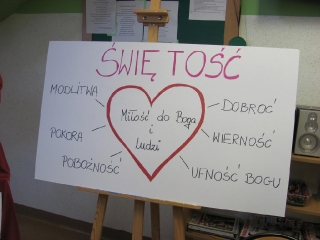 ŚWIĘTOŚĆ
MODLITWA
POKORA
POBOŻNOŚĆ
Miłość do Boga
i
Ludzi
DOBROĆ
WIERNOŚĆ
UFNOŚĆ BOGU